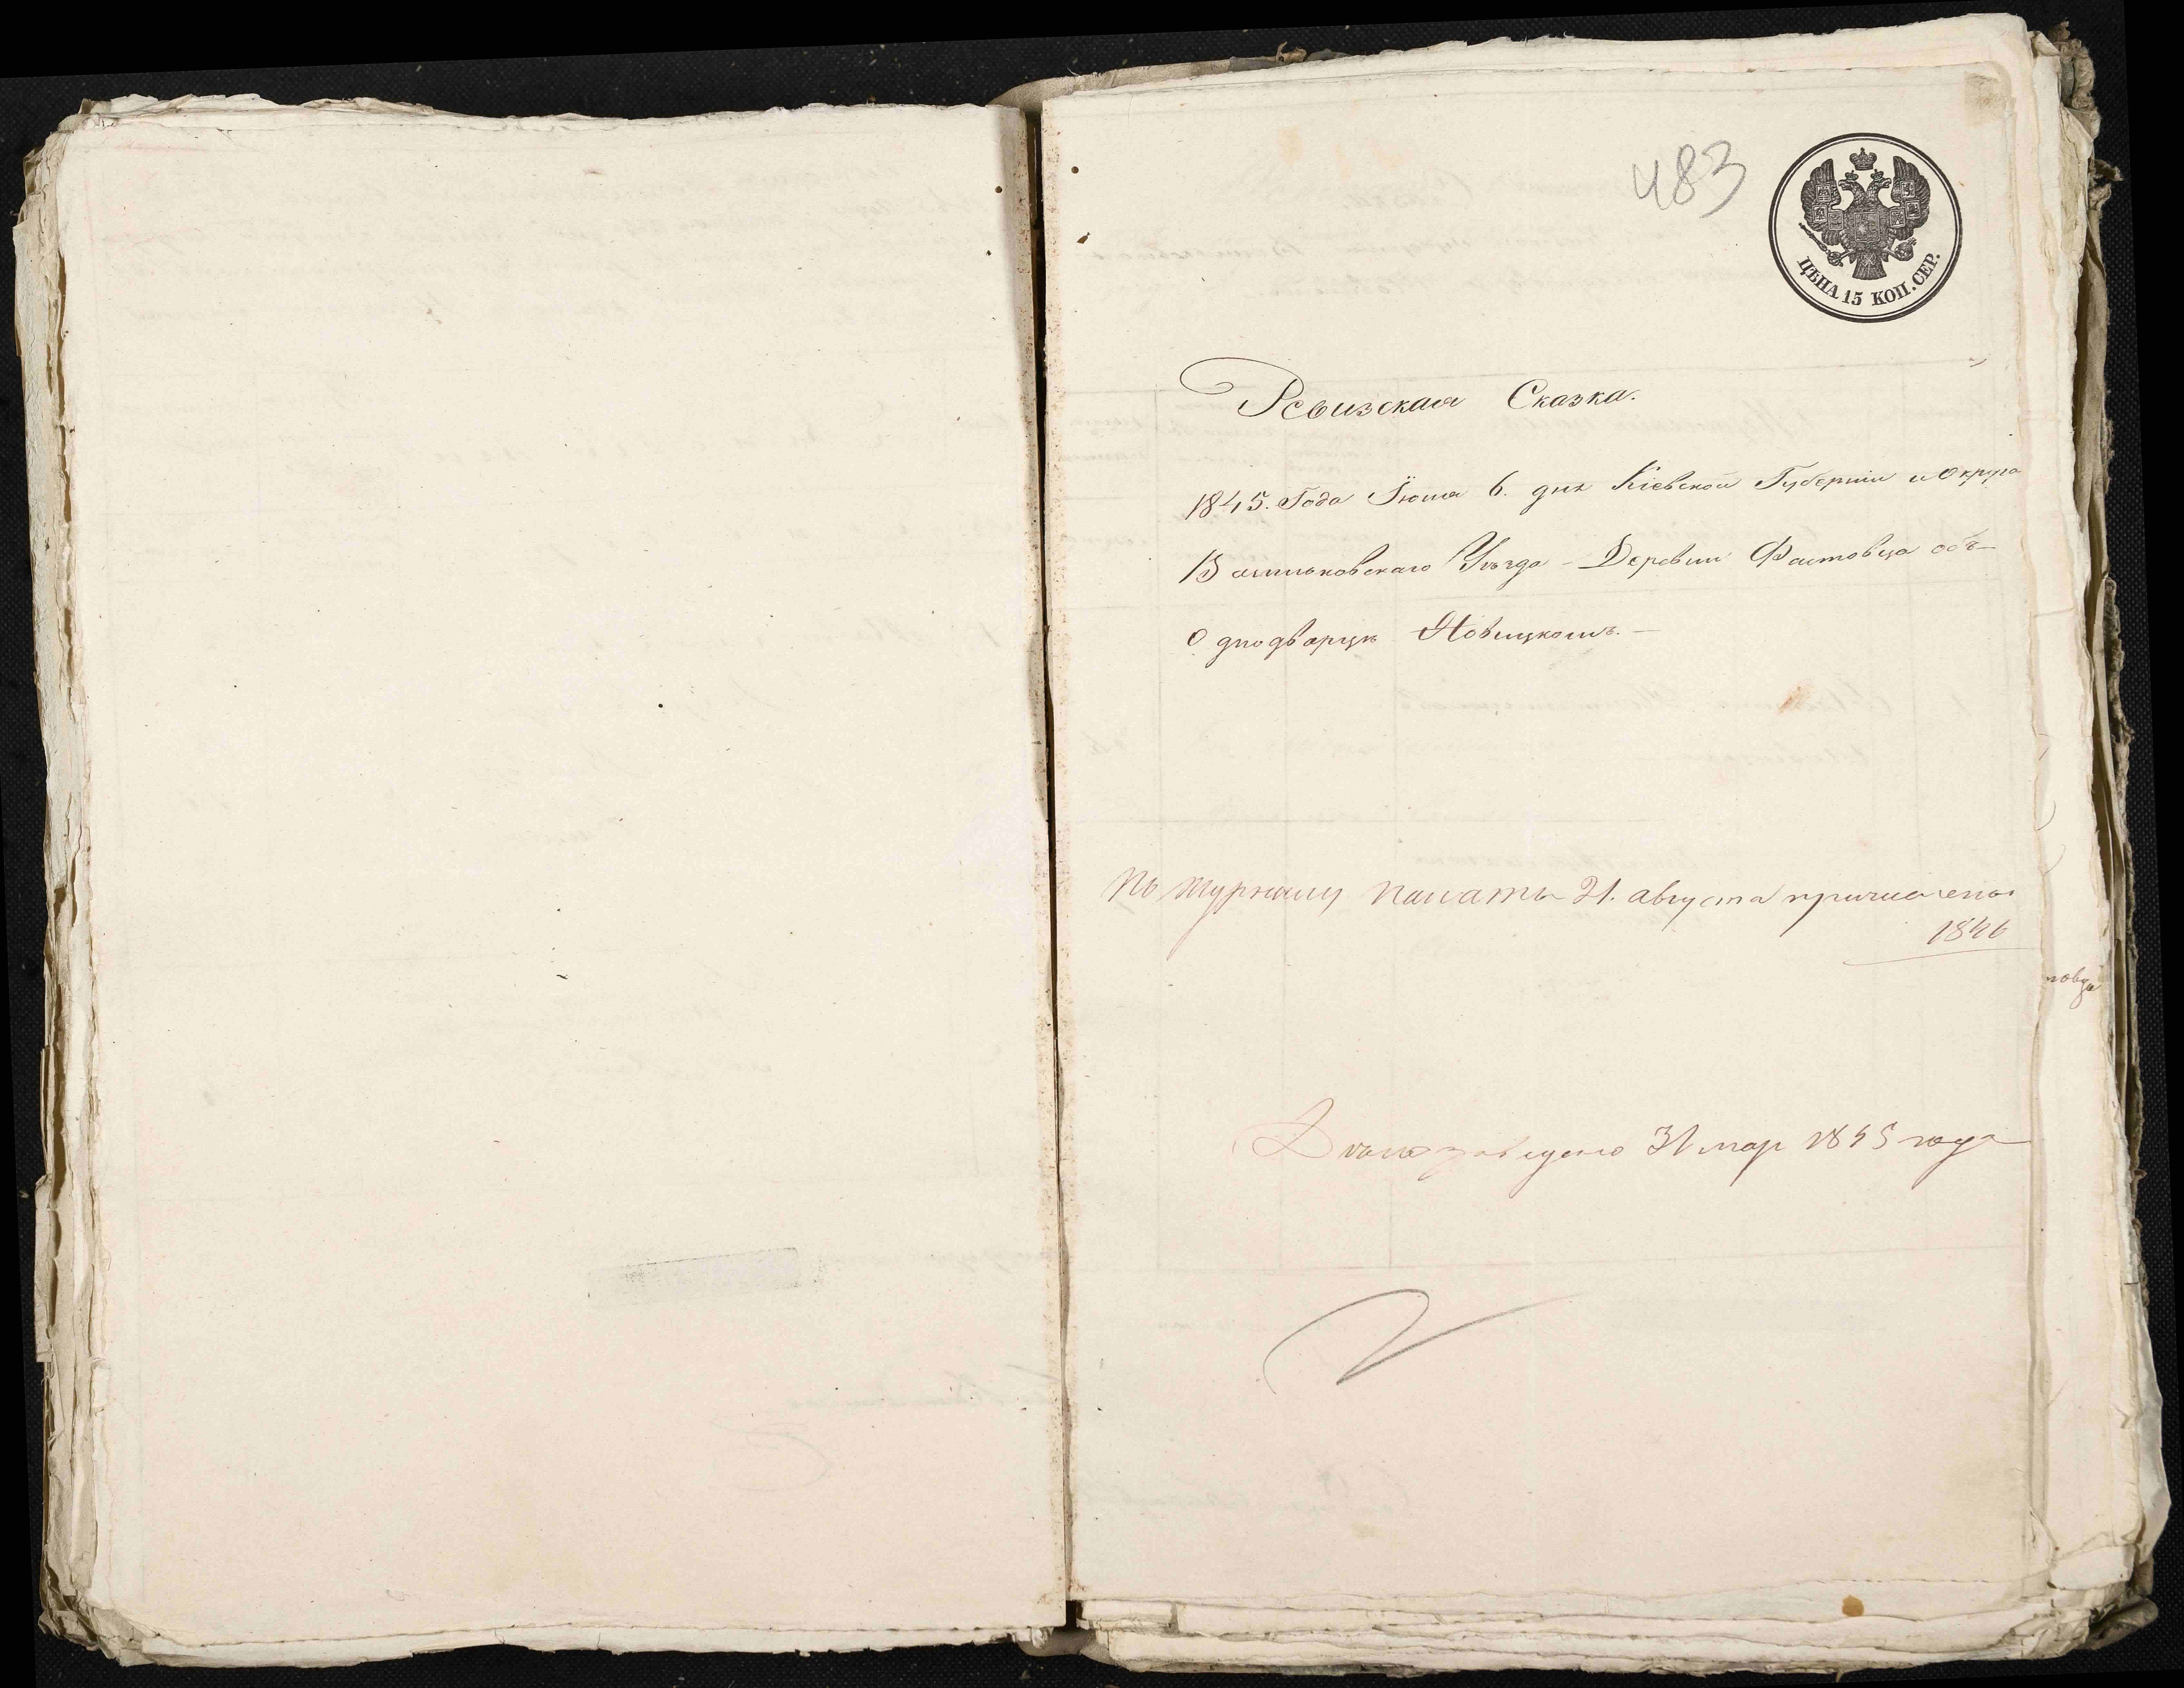 483
ЦѢНА 15 КОП. СЕР.
Ревизская Сказка.
1845. Года Іюля 6. дня Кіевской Губерніи и Округа
Васильковскаго Уѣзда - Деревни Фастовца объ-
Однодворцѣ Новицкомъ. -
По журналу палаты 21. августа причислены
1846
Дѣло заведено 31 мар 1845 года